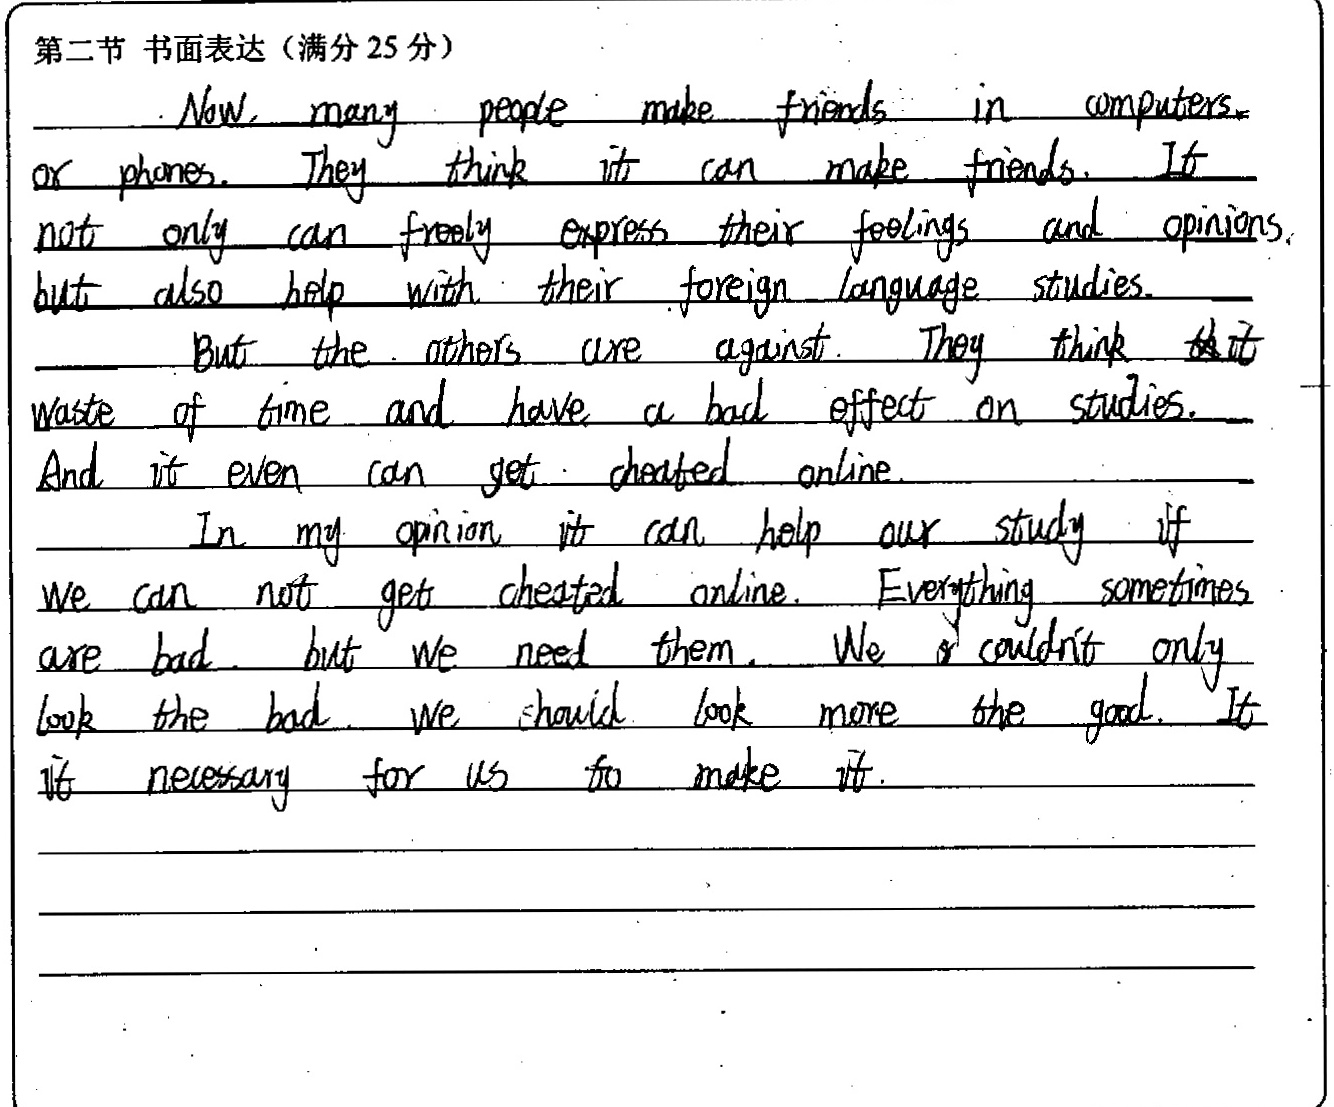 第二节 书面表达（满分 25 分）
Now, many people make friends in computers
or phones. They think it can make friends. It
not only can freely express their feelings and opinions,
but also help with their foreign language studies.
But the others are against. They think it
waste of time and have a bad effect on studies.
And it even can get cheated online.
In my opinion it can help our study if
we can not get cheated online. Everything sometimes
are bad. but we need them. We couldn't only
look the bad. we should look more the good. It
it necessary for us to make it.